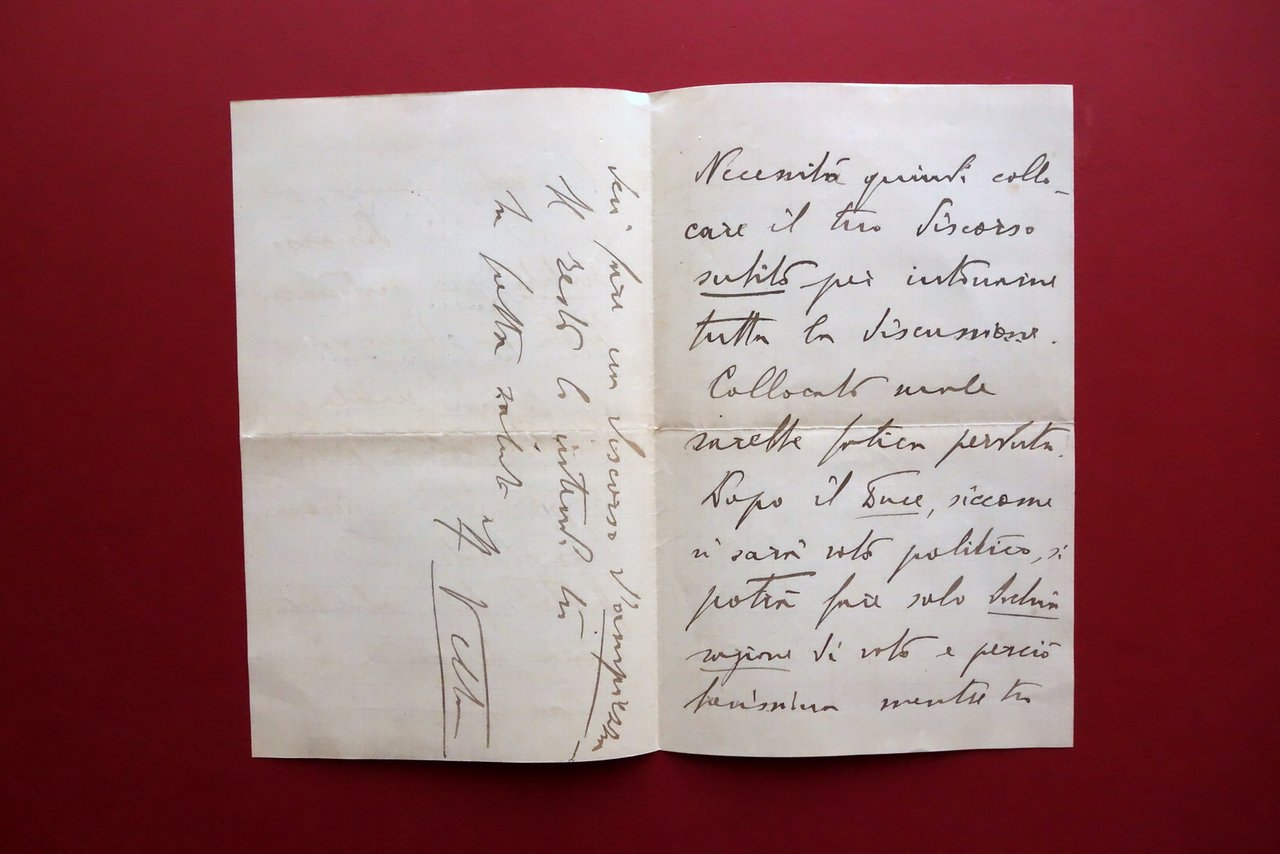 Necessità quindi collo-
care il tuo discorso
subito per intonarne
tutta la discussione.
Collocato male
sarebbe fatica perduta.
Dopo il Duce, siccome
vi sarà voto politico, si
potrà fare solo dichia
razione di voto e perciò
brevissima mentre tu
devi fare un discorso d'ampiezza
Il resto lo intendi tu
In fretta saluti